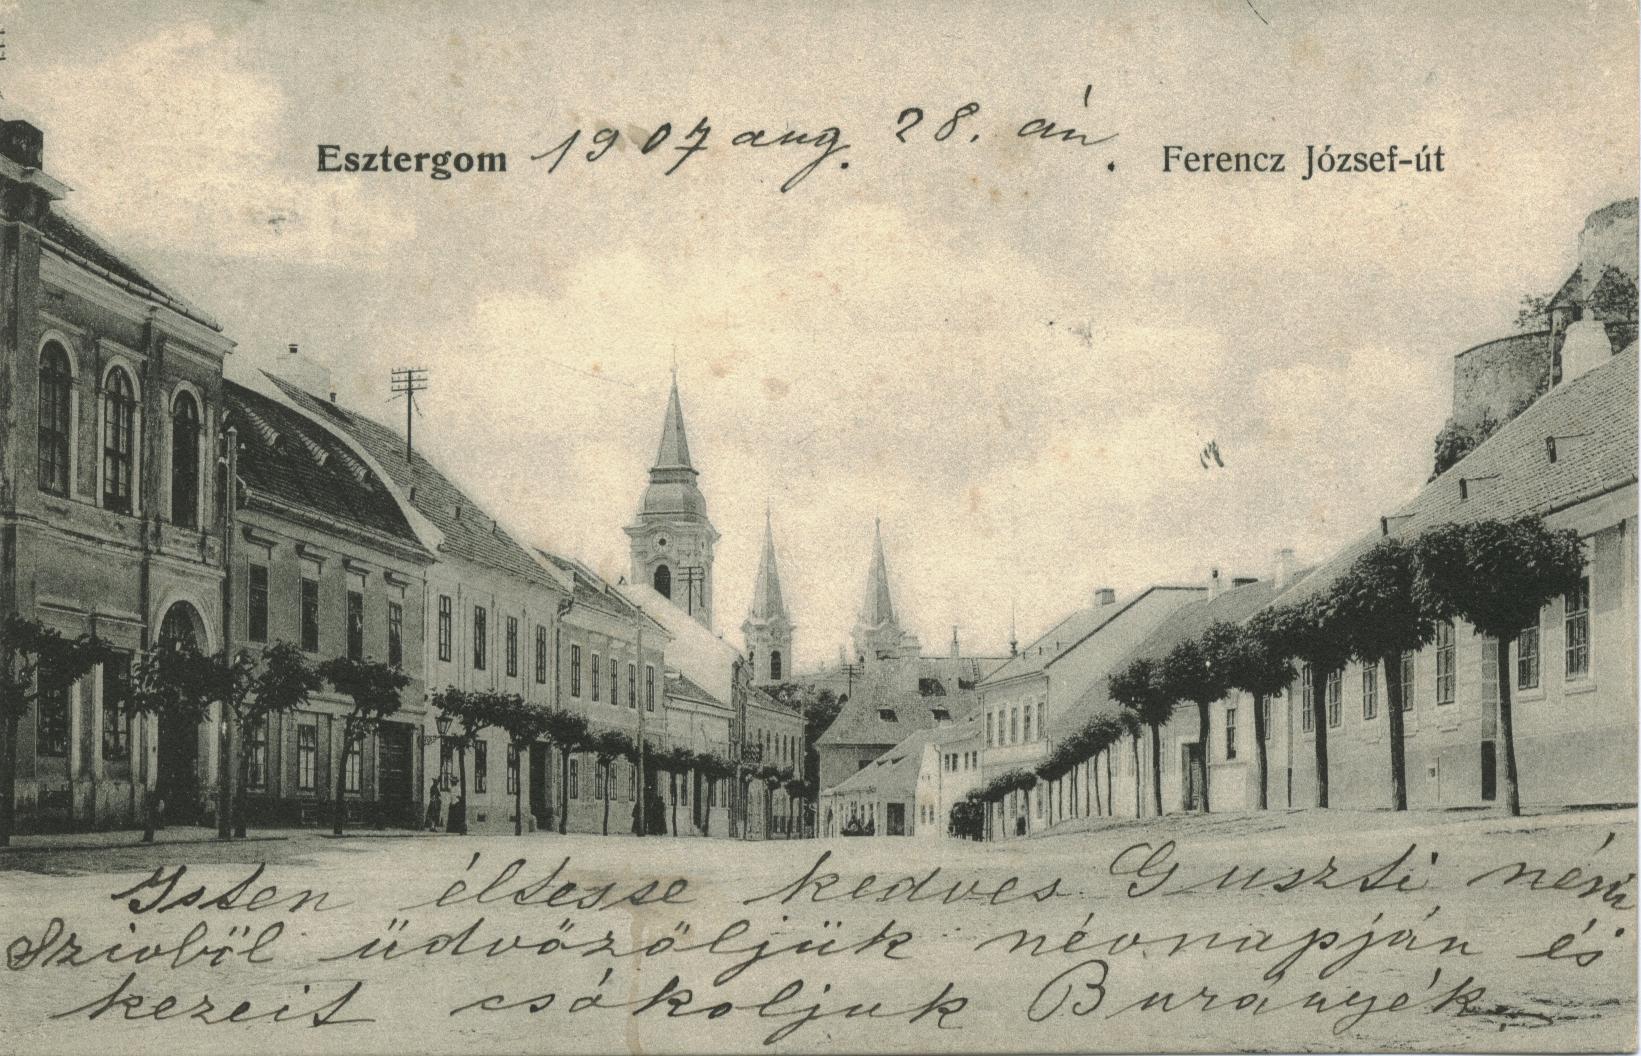 Esztergom 1907 aug. 28. án. Ferencz József-út
Isten éltesse kedves Guszti néni
Szivből üdvözöljük névnapján és
kezeit csókoljuk Burányék.